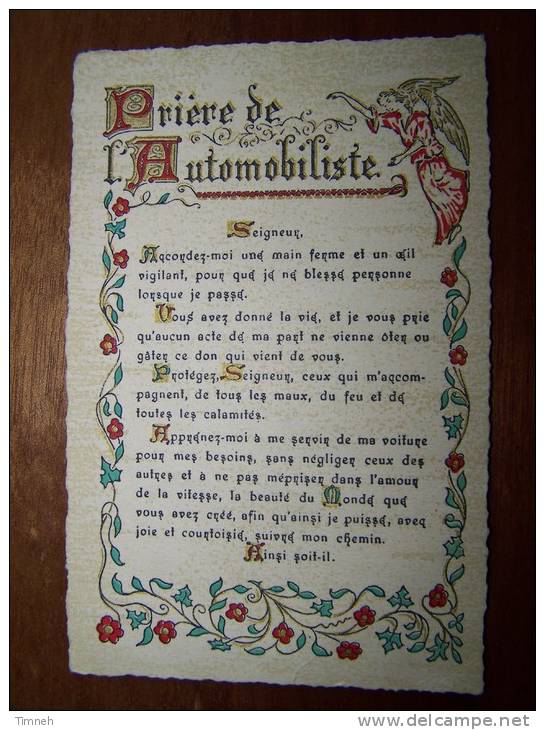 Prière de
l'Automobiliste
Seigneur,
Accordez-moi une main ferme et un œil
vigilant, pour que je ne blesse personne
lorsque je passe.
Vous avez donné la vie, et je vous prie
qu'aucun acte de ma part ne vienne ôter ou
gâter ce don qui vient de vous.
Protégez, Seigneur, ceux qui m'accom-
pagnent, de tous les maux, du feu et de
toutes les calamités.
Apprenez-moi à me servir de ma voiture
pour mes besoins, sans négliger ceux des
autres et à ne pas mépriser dans l'amour
de la vitesse, la beauté du Monde que
vous avez créé, afin qu'ainsi je puisse, avec
joie et courtoisie, suivre mon chemin.
Ainsi soit-il.
Timneh
www.delcampe.net